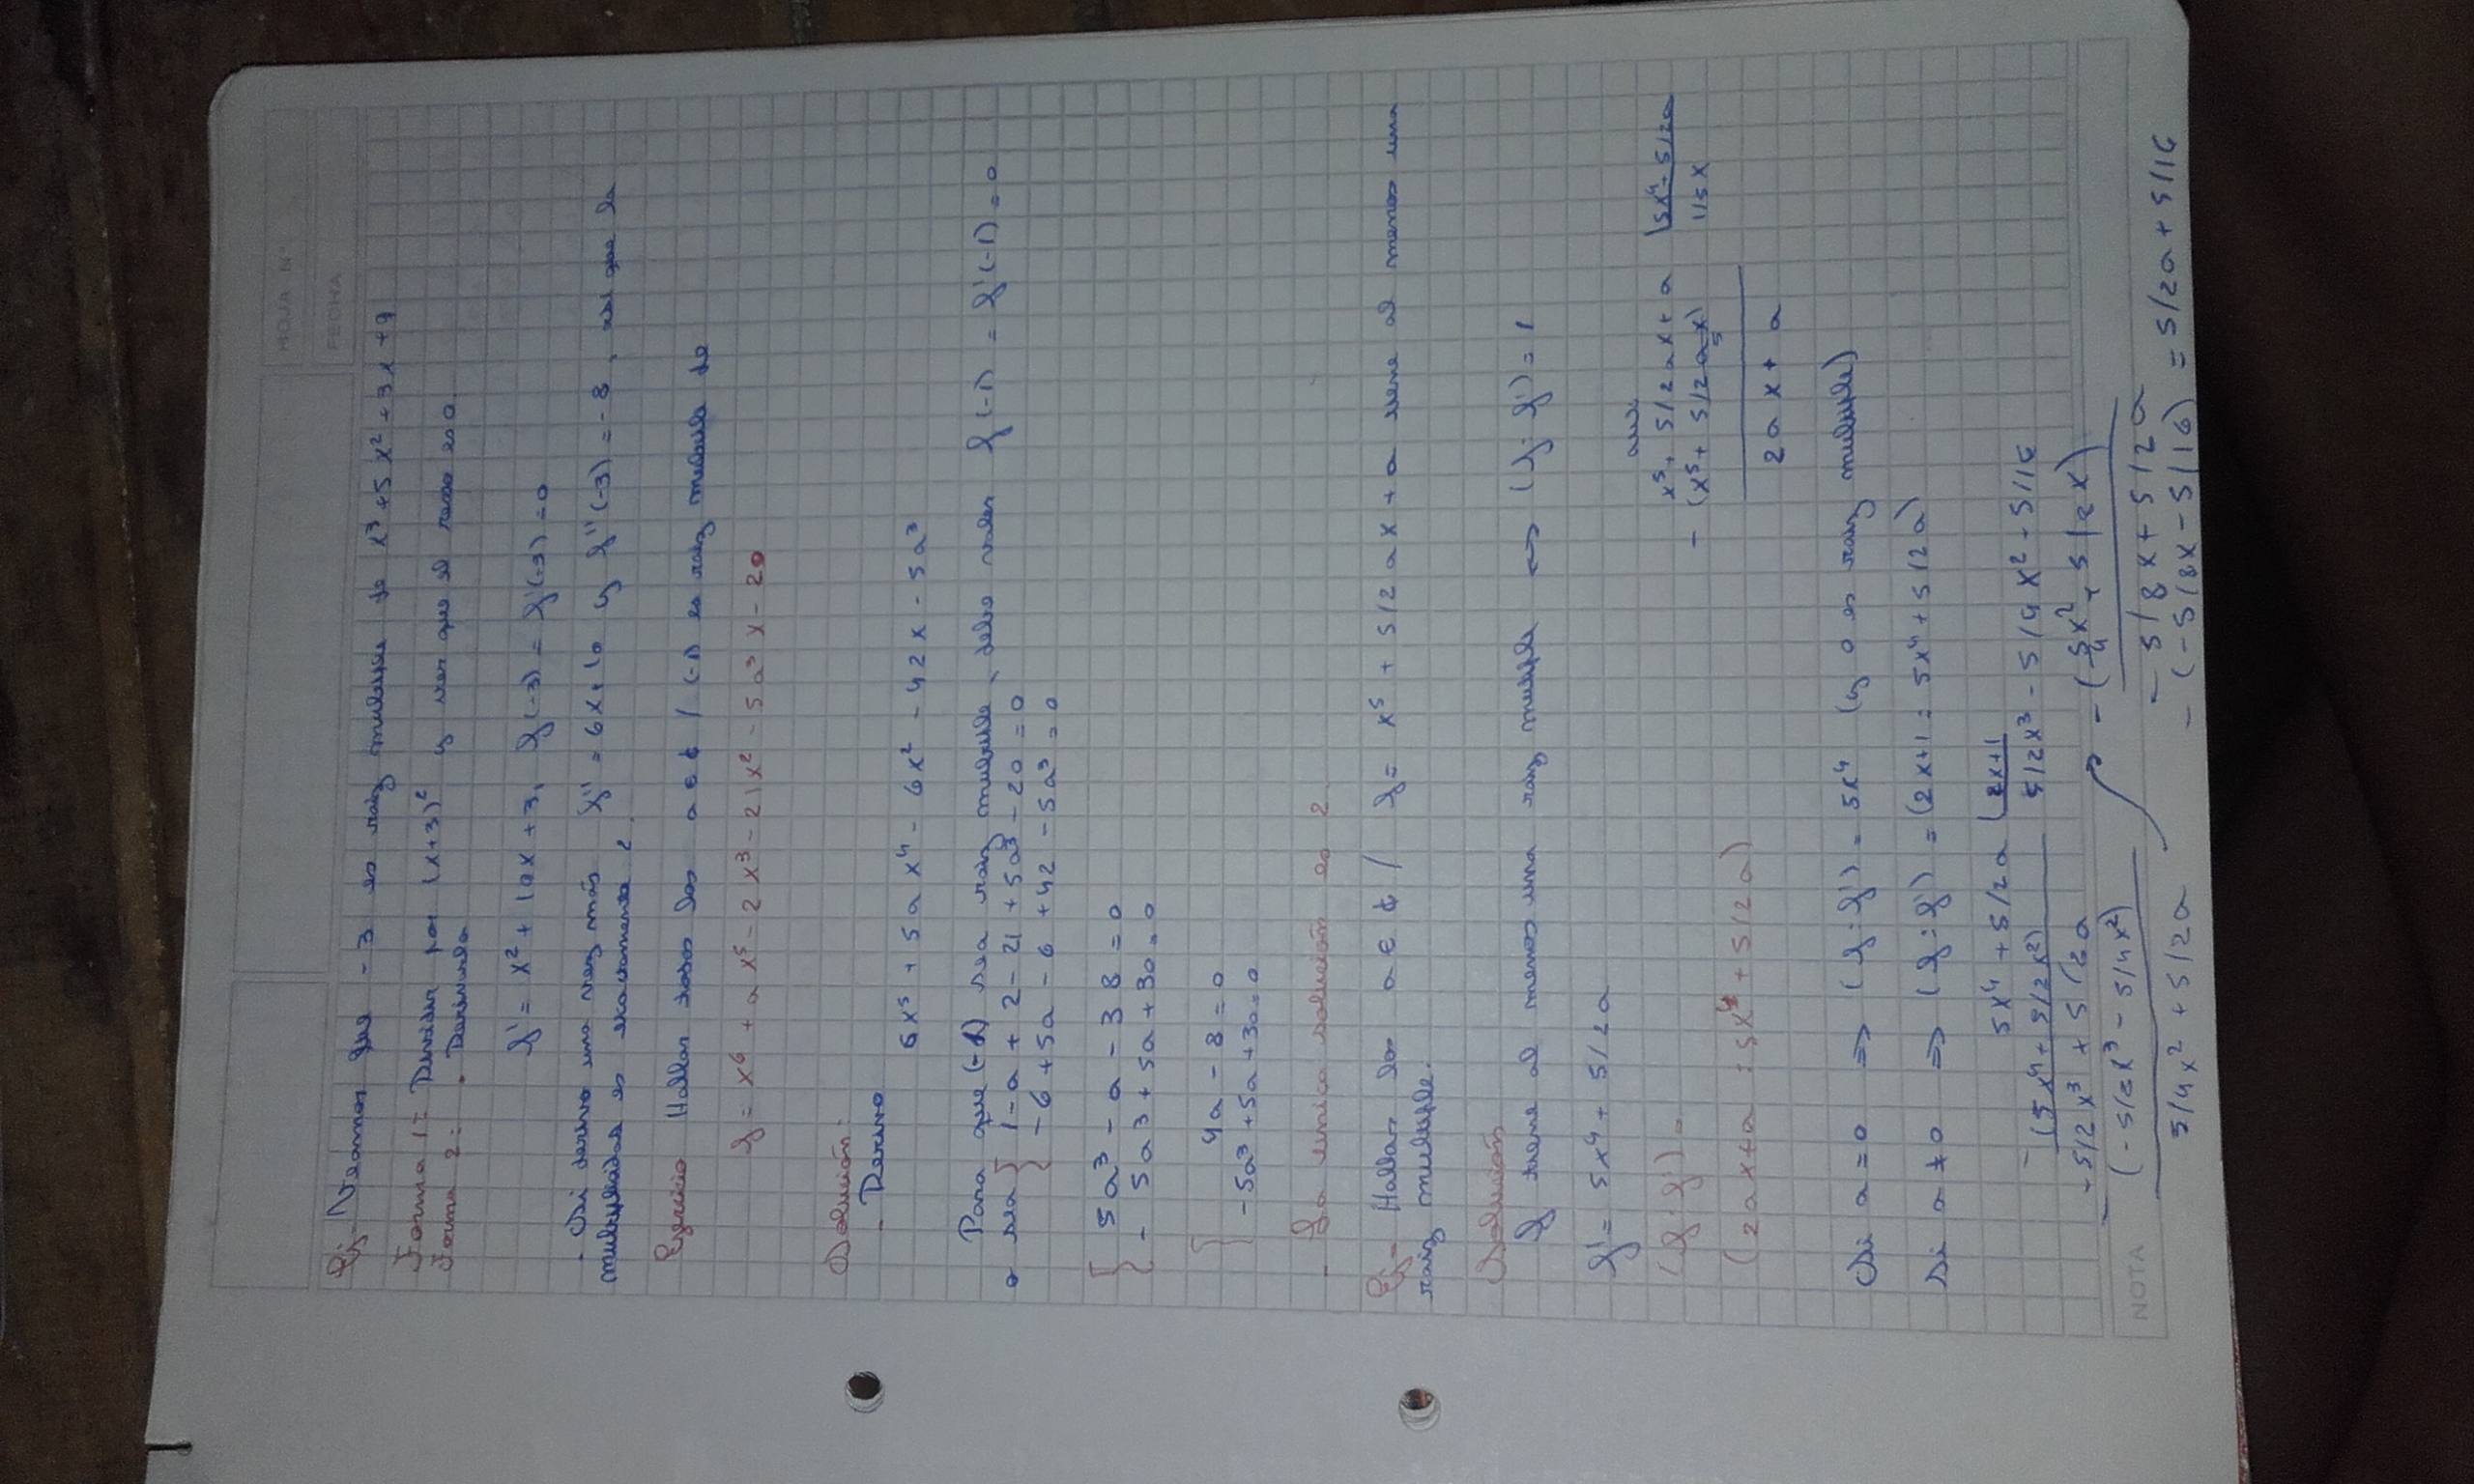 HOJA N°
FECHA
Ej- Veamos que -3 es raiz multiple de x³ + 5x² + 3x + 9
Forma 1: Dividir por (x+3)² y ver que el resto es 0.
Forma 2: . Derivarlo
f' = x² + 10x + 3, f(-3) = f'(-3) = 0
. Si derivo una vez más f'' = 6x+10 y f''(-3) = -8, así que la
multiplicidad es exactamente 2.
Ejercicio Hallar todos los a ∈ ℂ / (-1) es raiz multiple de
f = x⁶ + a x⁵ - 2x³ - 21x² - 5a³ x - 20
Solución:
- Derivo
6x⁵ + 5a x⁴ - 6x² - 42x - 5a³
Para que (-1) sea raiz multiple, debe valer f(-1) = f'(-1) = 0
o sea { 1 - a + 2 - 21 + 5a³ - 20 = 0
-6 + 5a - 6 + 42 - 5a³ = 0
{ 5a³ - a - 38 = 0
- 5a³ + 5a + 30 = 0
{ 4a - 8 = 0
-5a³ + 5a + 30 = 0
- La unica solución es 2.
Ej- Hallar los a ∈ ℂ / f = x⁵ + 5/2 ax + a tiene al menos una
raiz multiple.
Solución
f tiene al menos una raiz multiple ⟺ (f : f') = 1
f' = 5x⁴ + 5/2a
(f : f') =
(2ax+a : 5x⁴ + 5/2a)
aux
x⁵ + 5/2 ax + a |5x⁴ + 5/2a
- (x⁵ + 5/2 a x) 1/5 x
5
2a x + a
Si a = 0 ⟹ (f : f') = 5x⁴ (y 0 es raiz multiple)
Si a ≠ 0 ⟹ (f : f') = (2x+1 : 5x⁴ + 5/2a)
5x⁴ + 5/2a |2x+1
- (5x⁴ + 5/2x²) 5/2x³ - 5/4x² - 5/16
-5/2x³ + 5/2a
- (-5/2x³ - 5/4x²)
5/4x² + 5/2a
- (5/4 x² + 5/8 x)
- 5/8x + 5/2a
- (-5/8x - 5/16) = 5/2a + 5/16
NOTA